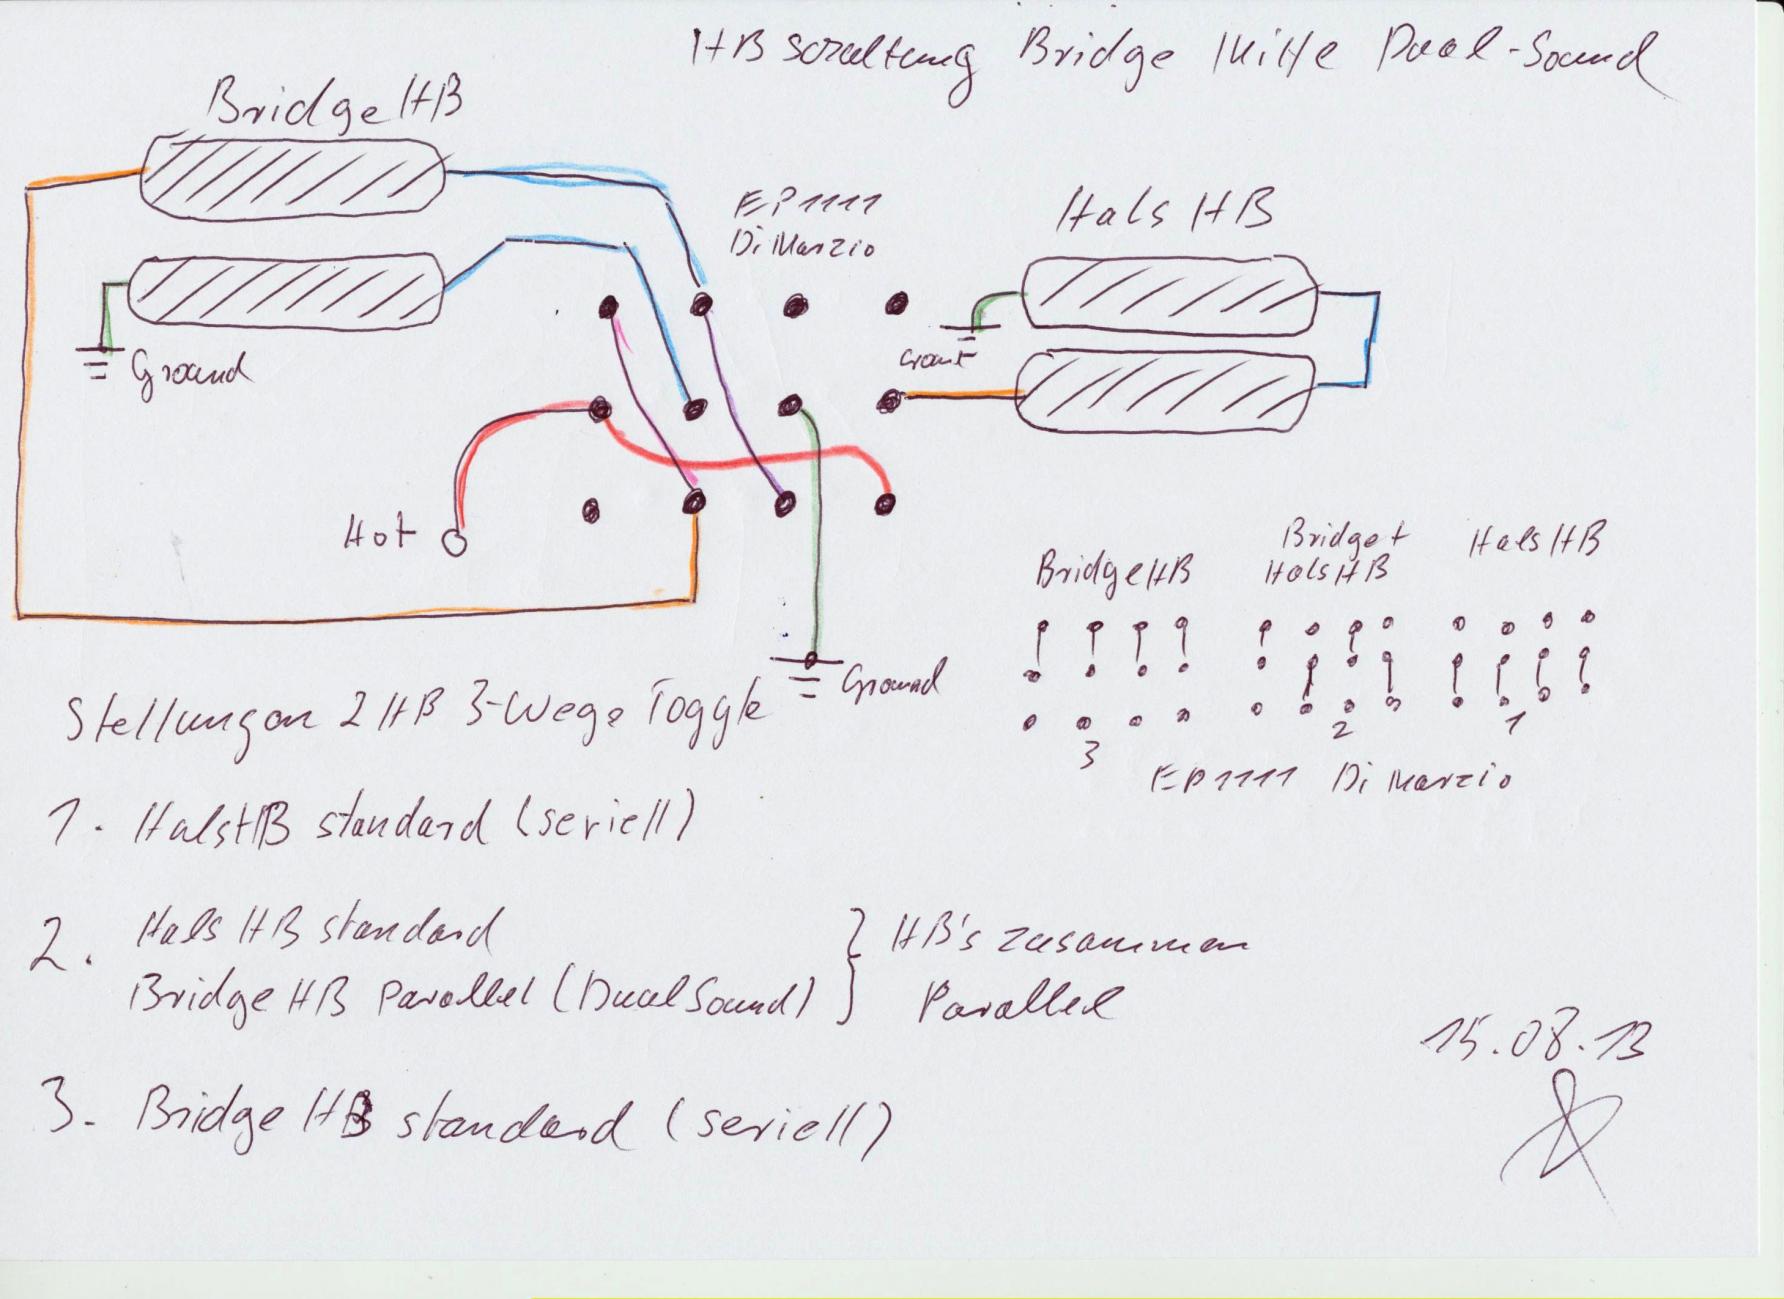 HB Schaltung Bridge Mitte Dual-Sound
Bridge HB
EP1111
DiMarzio
Hals HB
Ground
Hot
Ground
Bridge HB
Bridge +
Hals HB
Hals HB
3
2
1
EP1111 DiMarzio
Stellungen 2 HB 3-Wege Toggle
1. Hals HB standard (seriell)
2. Hals HB standard
Bridge HB Parallel (Dual Sound)
} HB's zusammen
Parallel
3. Bridge HB standard (seriell)
15.08.13